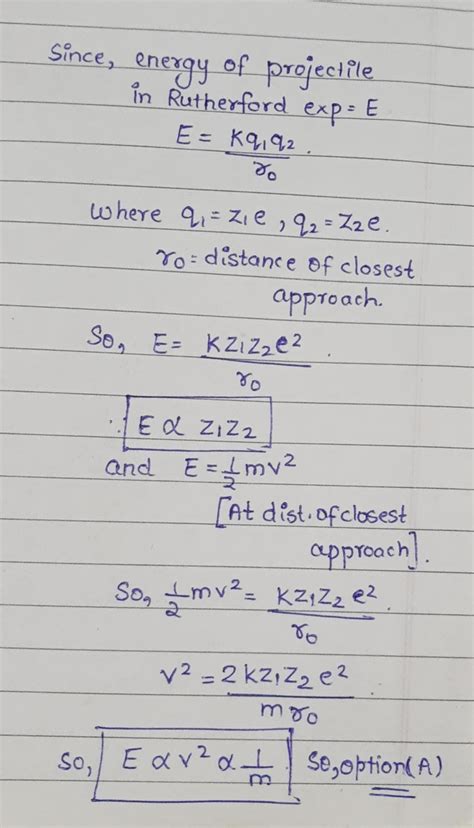 Since, energy of projectile
in Rutherford exp = E
E = Kq₁q₂ / r₀ .
where q₁ = z₁e , q₂ = Z₂e.
r₀ = distance of closest
approach.
So, E = KZ₁Z₂e² / r₀ .
∴ E ∝ Z₁Z₂
and E = 1/2 mv²
[At dist. of closest
approach].
So, 1/2 mv² = KZ₁Z₂e² / r₀ .
v² = 2KZ₁Z₂e² / mr₀
So, E ∝ v² ∝ 1/m So, option (A)